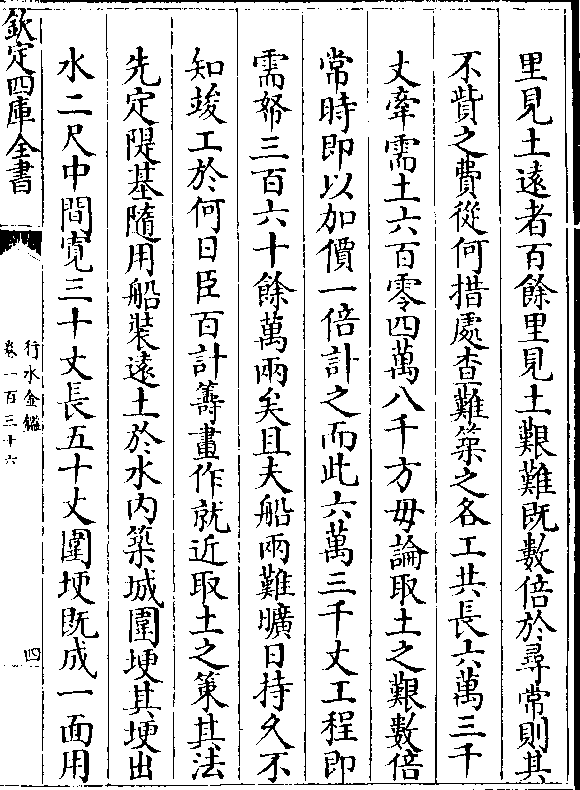 里見土遠者百餘里見土艱難既數倍於尋常則其
不貲之費從何措處查難築之各工共長六萬三千
丈牽需土六百零四萬八千方毋論取土之艱數倍
常時即以加價一倍計之而此六萬三千丈工程即
需帑三百六十餘萬兩矣且夫船兩難曠日持久不
知竣工於何日臣百計籌畫作就近取土之策其法
先定隄基隨用船裝遠土於水内築城圍埂其埂出
水二尺中間寬三十丈長五十丈圍埂既成一面用
欽定四庫全書
行水金鑑
卷一百三十六
四